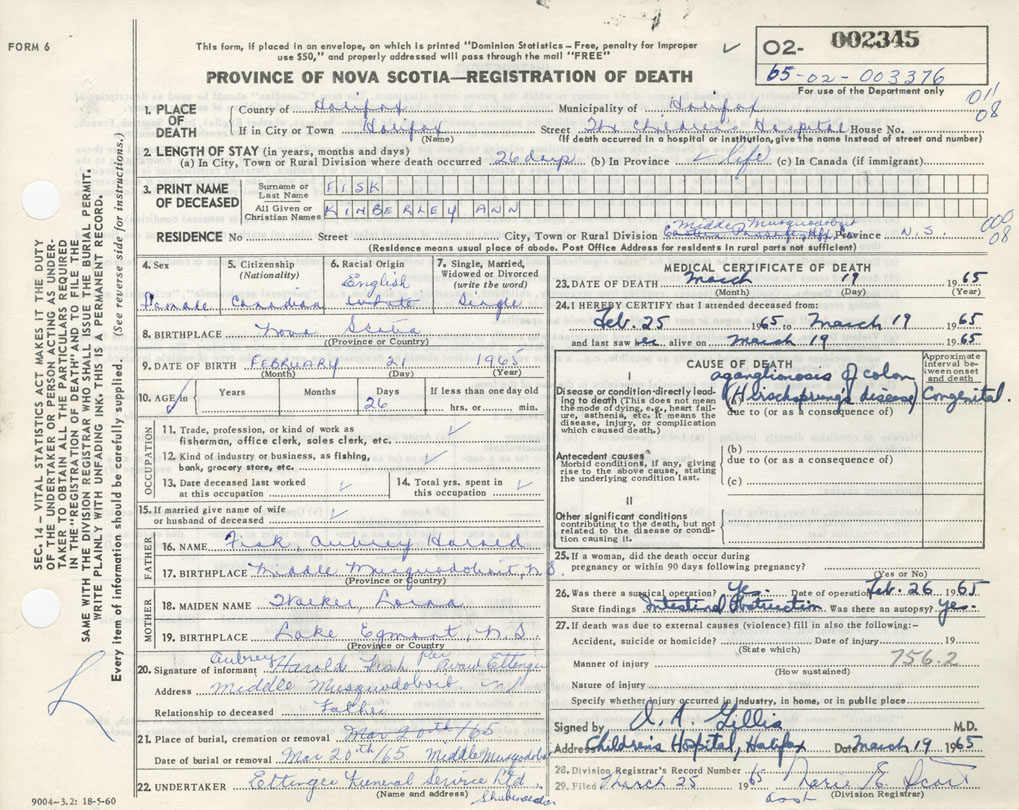 FORM 6
This form, if placed in an envelope, on which is printed "Dominion Statistics – Free, penalty for improper
use $50," and properly addressed will pass through the mail "FREE"
02- 002345
65-02-003376
For use of the Department only
PROVINCE OF NOVA SCOTIA—REGISTRATION OF DEATH
011
08
1. PLACE OF DEATH
County of Halifax Municipality of Halifax
If in City or Town Halifax Street The Children's Hospital House No.
(Name) (If death occurred in a hospital or institution, give the name instead of street and number)
2. LENGTH OF STAY (in years, months and days)
(a) In City, Town or Rural Division where death occurred 26 days (b) In Province Life (c) In Canada (if immigrant)
3. PRINT NAME OF DECEASED
Surname or Last Name FISK
All Given or Christian Names KIMBERLEY ANN
Middle Musquodoboit
RESIDENCE No Street City, Town or Rural Division Province N.S.
000
08
(Residence means usual place of abode. Post Office Address for residents in rural parts not sufficient)
4. Sex Female
5. Citizenship (Nationality) Canadian
6. Racial Origin English White
7. Single, Married, Widowed or Divorced (write the word) Single
8. BIRTHPLACE Nova Scotia
(Province or Country)
9. DATE OF BIRTH FEBRUARY 21 1965
(Month) (Day) (Year)
10. AGE in Years Months Days 26 If less than one day old hrs. or min.
OCCUPATION
11. Trade, profession, or kind of work as
fisherman, office clerk, sales clerk, etc.
12. Kind of industry or business, as fishing,
bank, grocery store, etc.
13. Date deceased last worked
at this occupation
14. Total yrs. spent in
this occupation
15. If married give name of wife
or husband of deceased
FATHER
16. NAME Fisk, Aubrey Harold
17. BIRTHPLACE Middle Musquodoboit, N.S.
(Province or Country)
MOTHER
18. MAIDEN NAME Lorna
19. BIRTHPLACE Lake Egmont, N.S.
(Province or Country)
20. Signature of informant Aubrey Harold Fisk Per Ettinger
Address Middle Musquodoboit. NS
Relationship to deceased Father
21. Place of burial, cremation or removal Mar 20th/65
Date of burial or removal Mar 20th/65 Middle Musquodoboit
22. UNDERTAKER Ettinger Funeral Service Ltd.
(Name and address) Shubenacadie
9004-3.2: 18-5-60
MEDICAL CERTIFICATE OF DEATH
23. DATE OF DEATH March 19 1965
(Month) (Day) (Year)
24. I HEREBY CERTIFY that I attended deceased from:
Feb. 25 1965 to March 19 1965
and last saw her alive on March 19 1965
CAUSE OF DEATH
Approximate interval between onset and death
I
Disease or condition directly leading to death (This does not mean the mode of dying, e.g., heart failure, asthenia, etc. It means the disease, injury, or complication which caused death.)
aganglionosis of colon
(Hirschsprung's disease) Congenital.
due to (or as a consequence of)
Antecedent causes
Morbid conditions, if any, giving rise to the above cause, stating the underlying condition last.
(b)
due to (or as a consequence of)
(c)
II
Other significant conditions
contributing to the death, but not related to the disease or condition causing it.
25. If a woman, did the death occur during
pregnancy or within 90 days following pregnancy?
(Yes or No)
26. Was there a surgical operation? Yes. Date of operation Feb. 26 1965
State findings Intestinal Obstruction Was there an autopsy? yes.
27. If death was due to external causes (violence) fill in also the following:-
Accident, suicide or homicide? Date of injury 19
(State which)
756.2
Manner of injury
(How sustained)
Nature of injury
Specify whether injury occurred in industry, in home, or in public place
Signed by A. Gillis M.D.
Address Children's Hospital, Halifax Date March 19 1965
28. Division Registrar's Record Number
29. Filed March 25 1965 Marie E. Scott
Asst (Division Registrar)
SEC. 14 – VITAL STATISTICS ACT MAKES IT THE DUTY
OF THE UNDERTAKER OR PERSON ACTING AS UNDER-
TAKER TO OBTAIN ALL THE PARTICULARS REQUIRED
IN THE "REGISTRATION OF DEATH" AND TO FILE THE
SAME WITH THE DIVISION REGISTRAR WHO SHALL ISSUE THE BURIAL PERMIT.
WRITE PLAINLY WITH UNFADING INK. THIS IS A PERMANENT RECORD.
Every item of information should be carefully supplied. (See reverse side for instructions.)